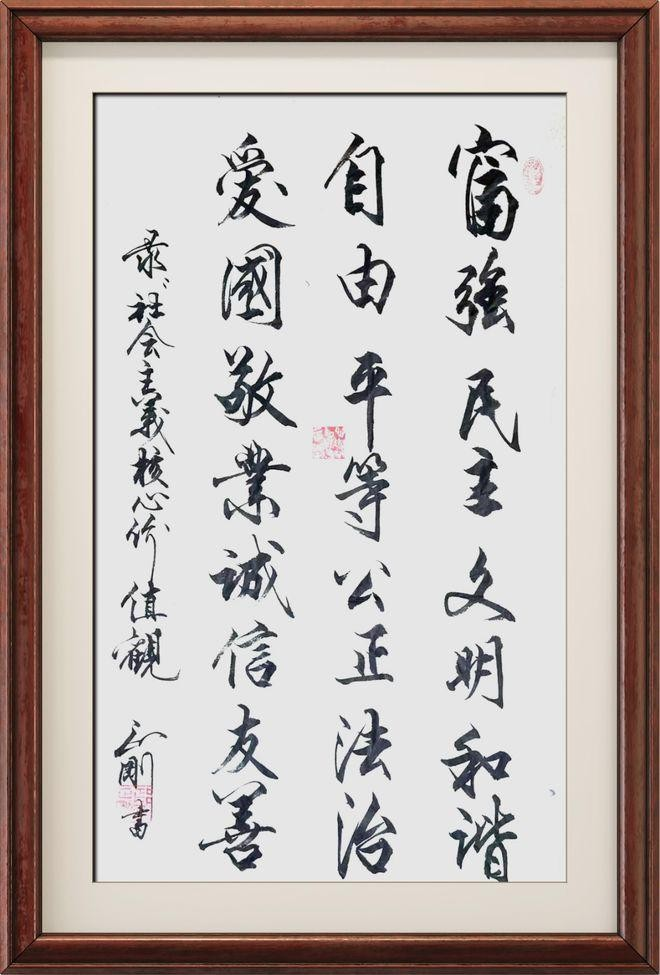 富強民主文明和谐
自由平等公正法治
愛國敬業诚信友善
录社会主義核心价值觀
剛書